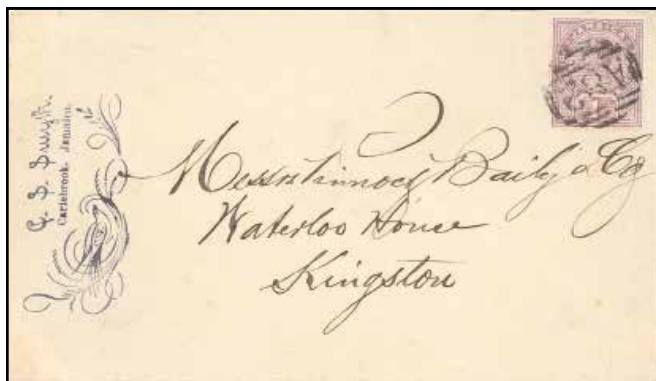 G. S. Smyth.
Carlebrook. Jamaica.
Messrs Baily & Co
Waterloo House
Kingston